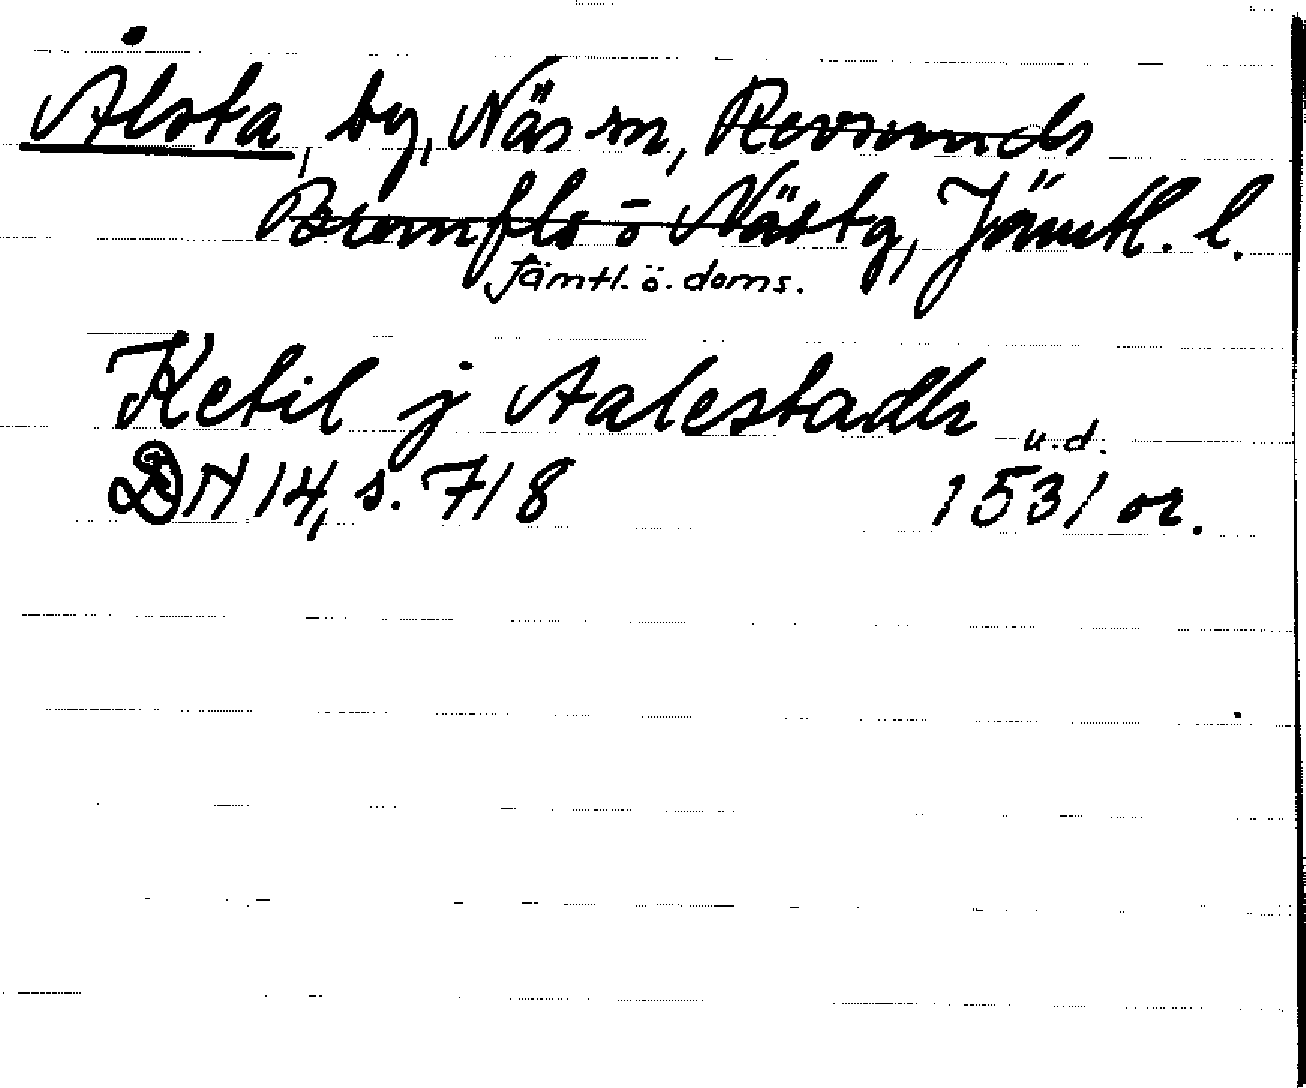 Ålsta, by, Näs sn, Revsunds
Brunflo o Näs tg, Jämtl. l.
Jämtl. ö. doms.
Ketil j Aalestadh
u.d.
DN 14, s. 718 1531 or.